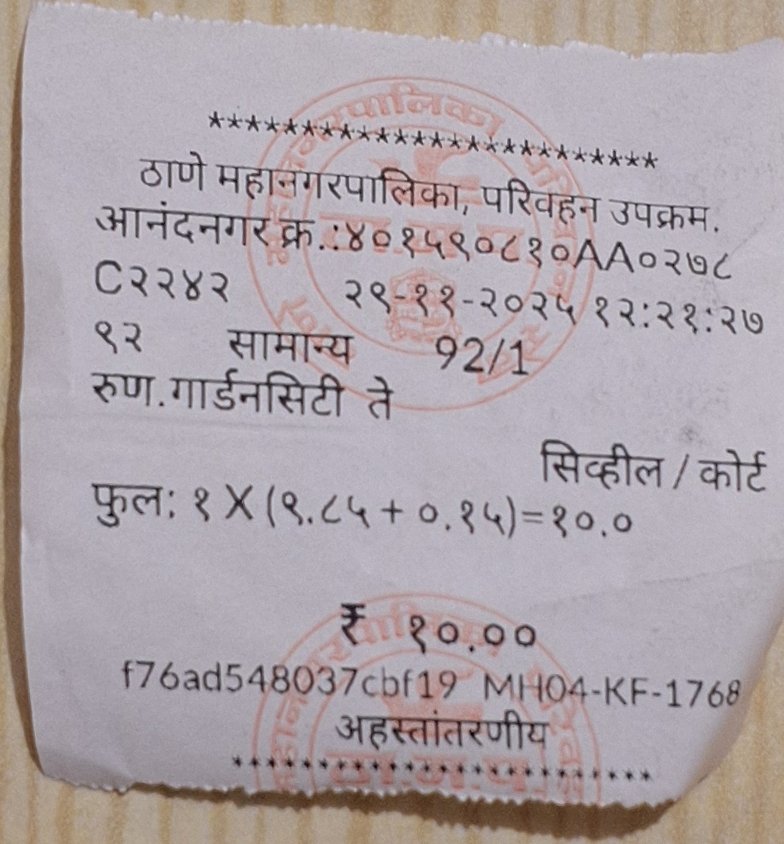 ************************
ठाणे महानगरपालिका, परिवहन उपक्रम.
आनंदनगर क्र.:४०१५९०८१०AA०२७८
C२२४२ २९-११-२०२५ १२:२१:२७
९२ सामान्य 92/1
रुण.गार्डनसिटी ते
सिव्हील / कोर्ट
फुल: १ X (९.८५ + ०.१५)=१०.०
₹ १०.००
f76ad548037cbf19 MH04-KF-1768
अहस्तांतरणीय
************************